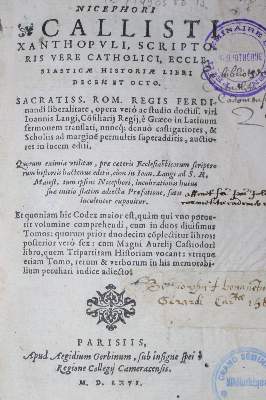 NICEPHORI
CALLISTI
XANTHOPVLI, SCRIPTO-
RIS VERE CATHOLICI, ECCLE-
SIASTICAE HISTORIAE LIBRI
DECEM ET OCTO.
SACRATISS. ROM. REGIS FERDI-
nandi liberalitate, opera verò ac studio doctiss. viri
Ioannis Langi, Cōsiliarij Regij, è Græco in Latinum
sermonem translati, nuncq; denuò castigatiores, &
Scholiis ad marginē permultis superadditis, auctio-
res in lucem editi.
Quorum eximia vtilitas, præ cæteris Ecclesiasticarum scripto-
rum historiis hactenus editis, cùm in Ioan. Langi ad S. R.
Maiest. tum ipsius Nicephori, lucubrationi huius
suæ initio statim adiecta Præfatione, satis
luculenter exponitur.
Et quoniam hic Codex maior est, quàm qui vno pote-
rit volumine comprehendi, eum in duos diuisimus
Tomos: quorum prior duodecim cōplectitur libros:
posterior verò sex: cum Magni Aurelij Cassiodori
libro, quem Tripartitam Historiam vocant: vtrique
etiam Tomo, rerum & verborum in his memorabi-
lium peculiari indice adiecto.
PARISIIS,
Apud Aegidium Gorbinum, sub insigne spei è
Regione Collegij Cameracensis.
M. D. LXVI.
GRAND SÉMIN
Bibliothèque